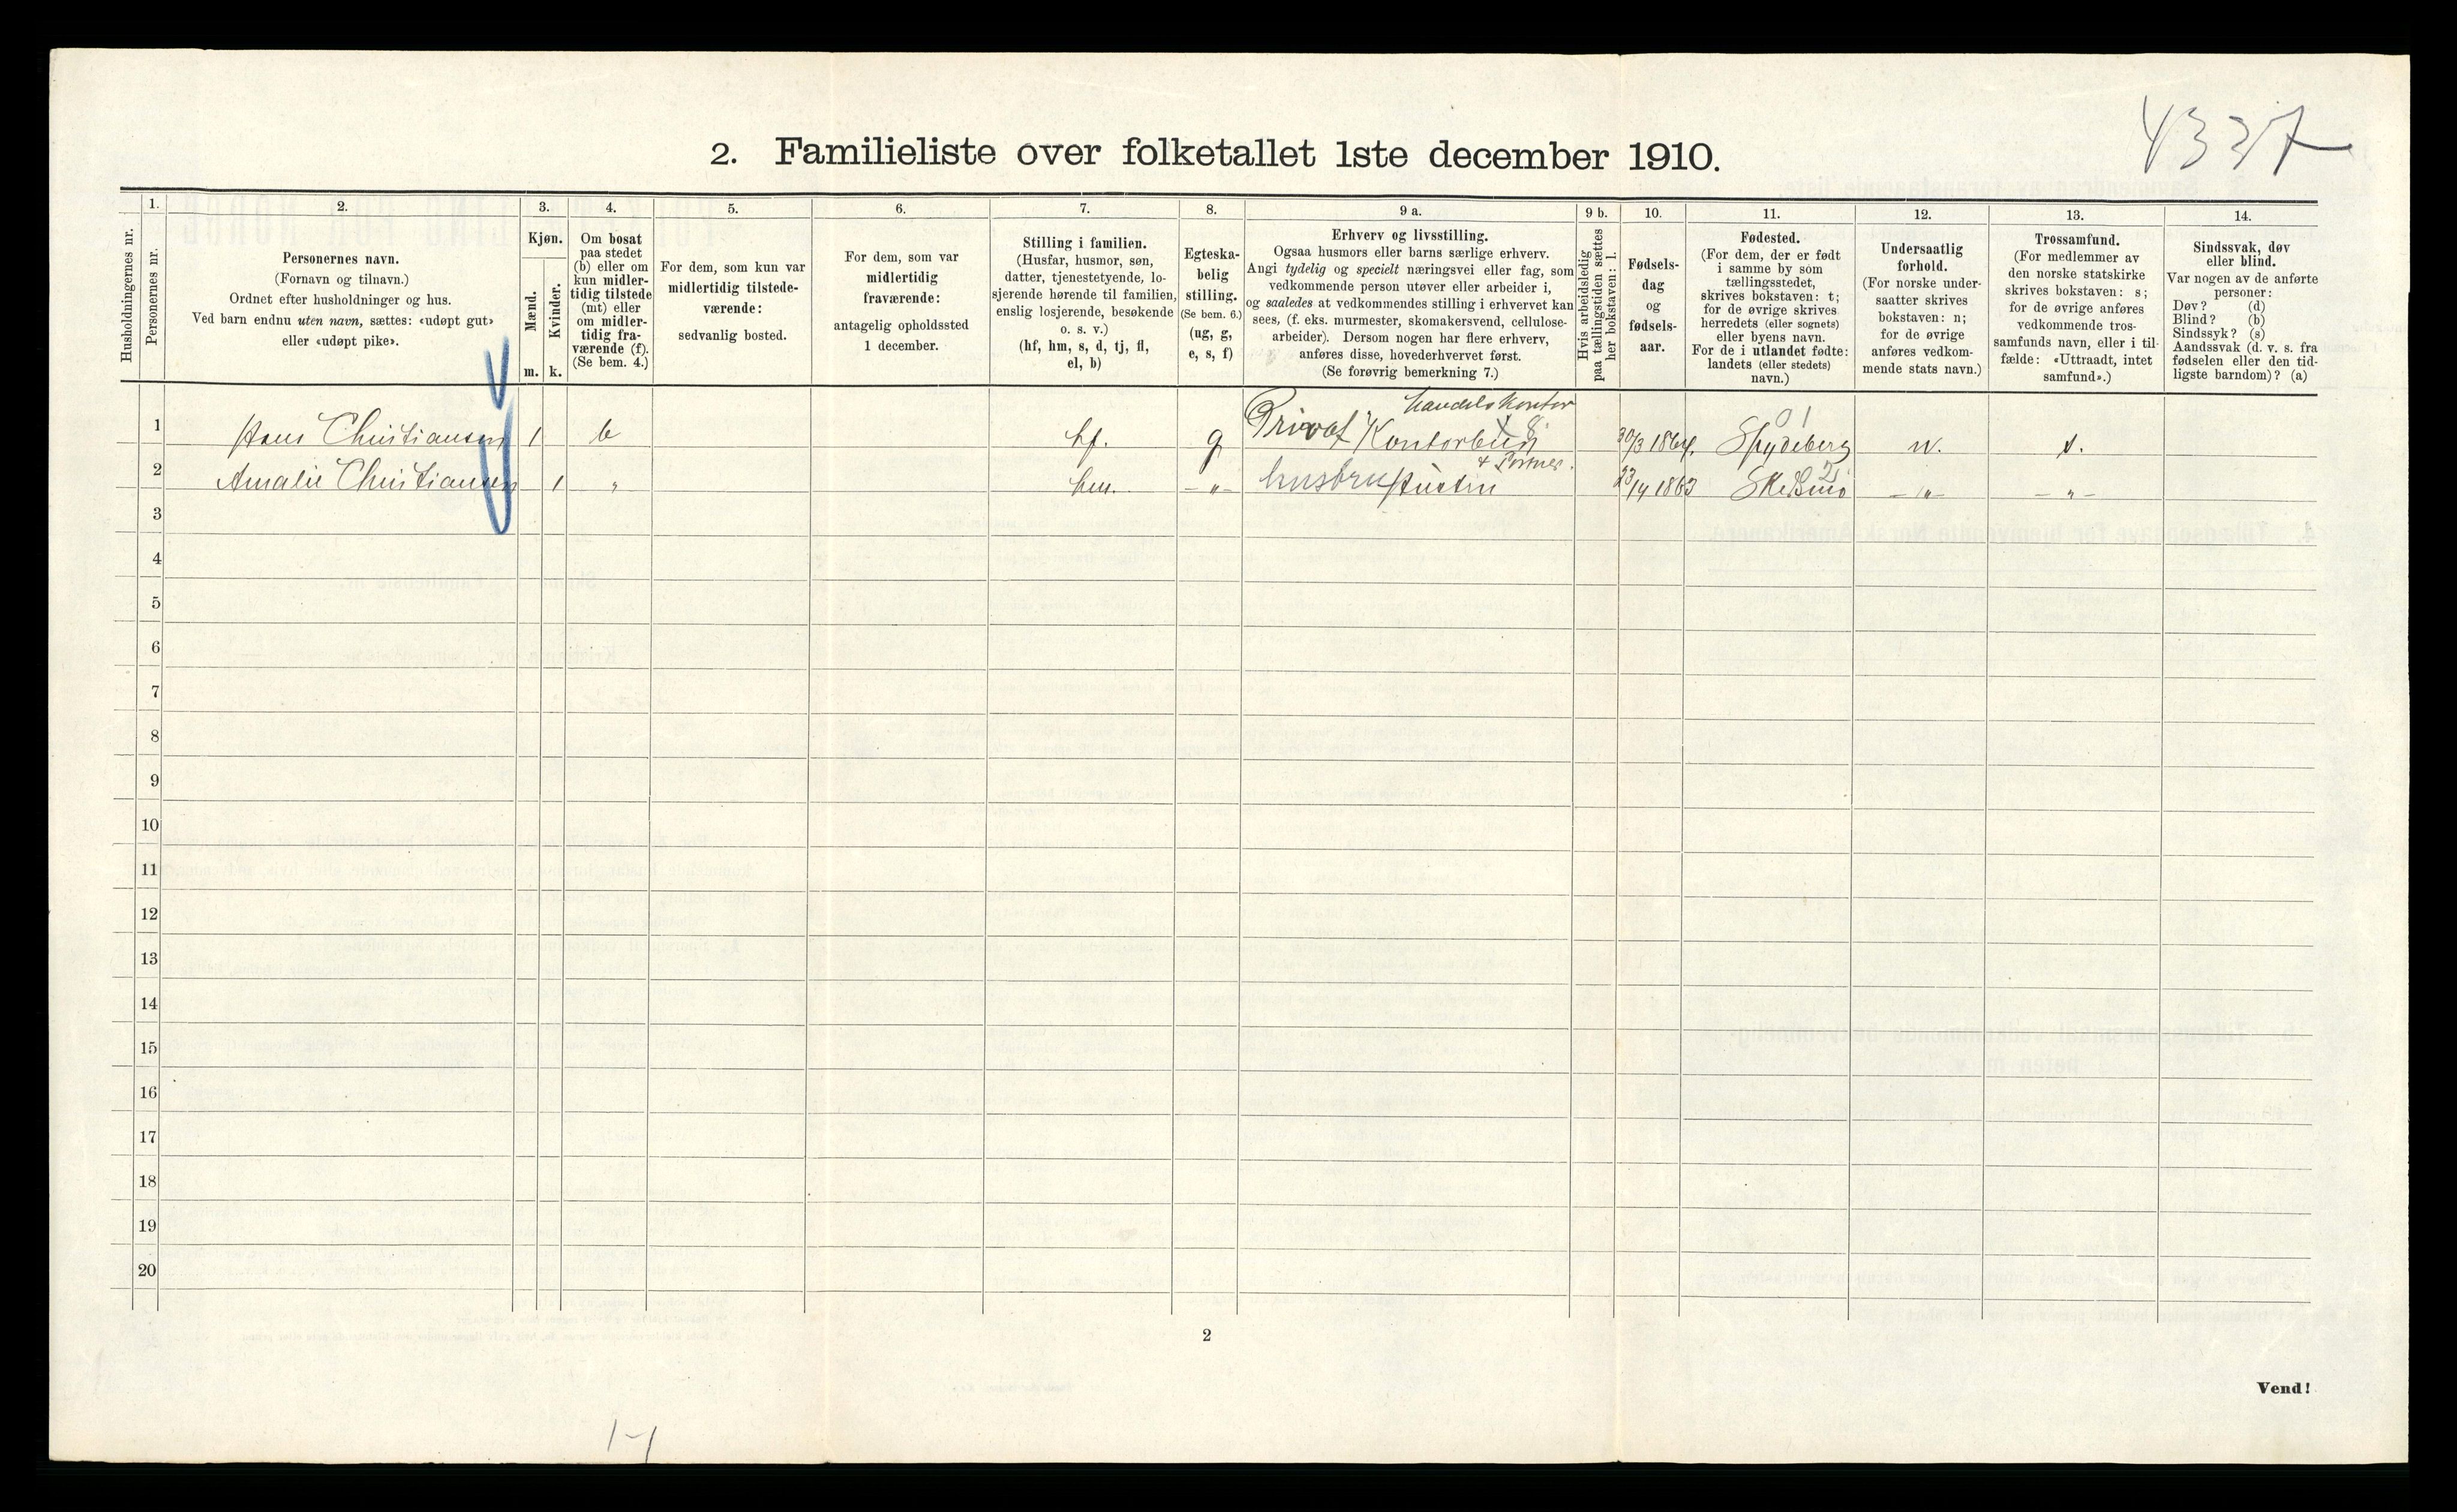 4337
2. Familieliste over folketallet 1ste december 1910.
Husholdningernes nr.
1.
Personernes nr.
2.
Personernes navn.
(Fornavn og tilnavn.)
Ordnet efter husholdninger og hus.
Ved barn endnu uten navn, sættes: «udøpt gut»
eller «udøpt pike».
3.
Kjøn.
Mænd.
Kvinder.
m. k.
4.
Om bosat
paa stedet
(b) eller om
kun midler-
tidig tilstede
(mt) eller
om midler-
tidig fra-
værende (f).
(Se bem. 4.)
5.
For dem, som kun var
midlertidig tilstede-
værende:
sedvanlig bosted.
6.
For dem, som var
midlertidig
fraværende:
antagelig opholdssted
1 december.
7.
Stilling i familien.
(Husfar, husmor, søn,
datter, tjenestetyende, lo-
sjerende hørende til familien,
enslig losjerende, besøkende
o. s. v.)
(hf, hm, s, d, tj, fl,
el, b)
8.
Egteska-
belig
stilling.
(Se bem. 6.)
(ug, g,
e, s, f)
9 a.
Erhverv og livsstilling.
Ogsaa husmors eller barns særlige erhverv.
Angi tydelig og specielt næringsvei eller fag, som
vedkommende person utøver eller arbeider i,
og saaledes at vedkommendes stilling i erhvervet kan
sees, (f. eks. murmester, skomakersvend, cellulose-
arbeider). Dersom nogen har flere erhverv,
anføres disse, hovederhvervet først.
(Se forøvrig bemerkning 7.)
9 b.
Hvis arbeidsledig
paa tællingstiden sættes
her bokstaven: l.
10.
Fødsels-
dag
og
fødsels-
aar.
11.
Fødested.
(For dem, der er født
i samme by som
tællingsstedet,
skrives bokstaven: t;
for de øvrige skrives
herredets (eller sognets)
eller byens navn.
For de i utlandet fødte:
landets (eller stedets)
navn.)
12.
Undersaatlig
forhold.
(For norske under-
saatter skrives
bokstaven: n;
for de øvrige
anføres vedkom-
mende stats navn.)
13.
Trossamfund.
(For medlemmer av
den norske statskirke
skrives bokstaven: s;
for de øvrige anføres
vedkommende tros-
samfunds navn, eller i til-
fælde: «Uttraadt, intet
samfund».)
14.
Sindssvak, døv
eller blind.
Var nogen av de anførte
personer:
Døv? (d)
Blind? (b)
Sindssyk? (s)
Aandssvak (d. v. s. fra
fødselen eller den tid-
ligste barndom)? (a)
handelskontor
01
1 Hans Christiansen 1 b hf. g Privat Kontorbud 30/3 1864. Spydeberg n. s.
2 Amalie Christiansen 1 " hm. -"- husbru 1863 -"- -"-
3
4
5
6
7
8
9
10
11
12
13
14
15
16
17
18
19
20
2
Vend!